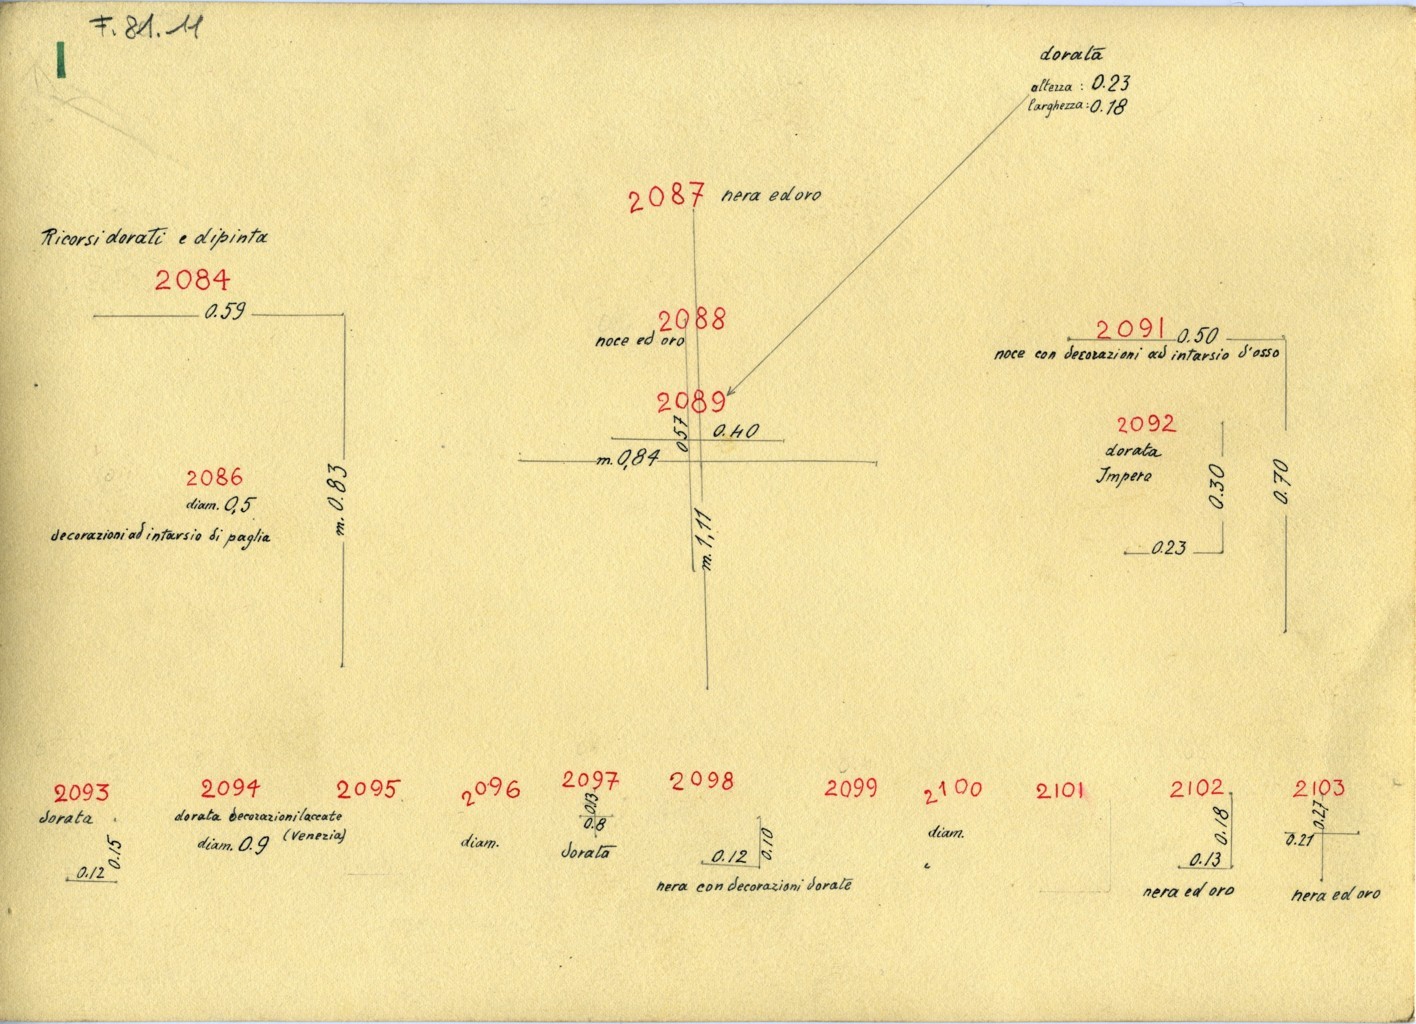 F. 81.11
I
dorata
altezza : 0.23
larghezza: 0.18
2087 nera ed oro
Ricorsi dorati e dipinta
2084
0.59
m. 0.83
2086
diam. 0,5
decorazioni ad intarsio di paglia
2088
noce ed oro
2089
0.40
057
m. 0,84
m. 1,11
2091 0.50
noce con decorazioni ad intarsio d'osso
2092
dorata
Impero
0.30
0.23
0.70
2093
dorata
0.15
0.12
2094
dorata decorazioni laccate
(Venezia)
diam. 0.9
2095
2096
diam.
2097
0.13
0.8
dorata
2098
0.12
0.10
nera con decorazioni dorate
2099
2100
diam.
2101
2102
0.18
0.13
nera ed oro
2103
0.27
0.21
nera ed oro